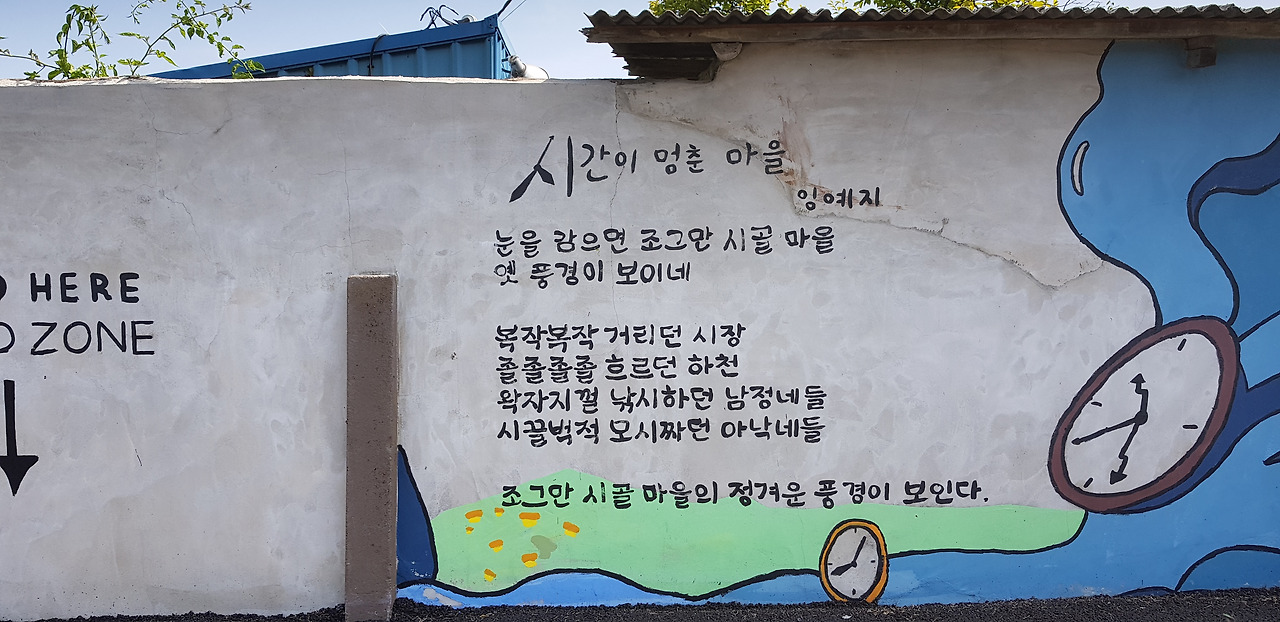 HERE
ZONE
시간이 멈춘 마을
임예지
눈을 감으면 조그만 시골 마을
옛 풍경이 보이네
복작복작 거리던 시장
졸졸졸졸 흐르던 하천
왁자지껄 낚시하던 남정네들
시끌벅적 모시짜던 아낙네들
조그만 시골 마을의 정겨운 풍경이 보인다.